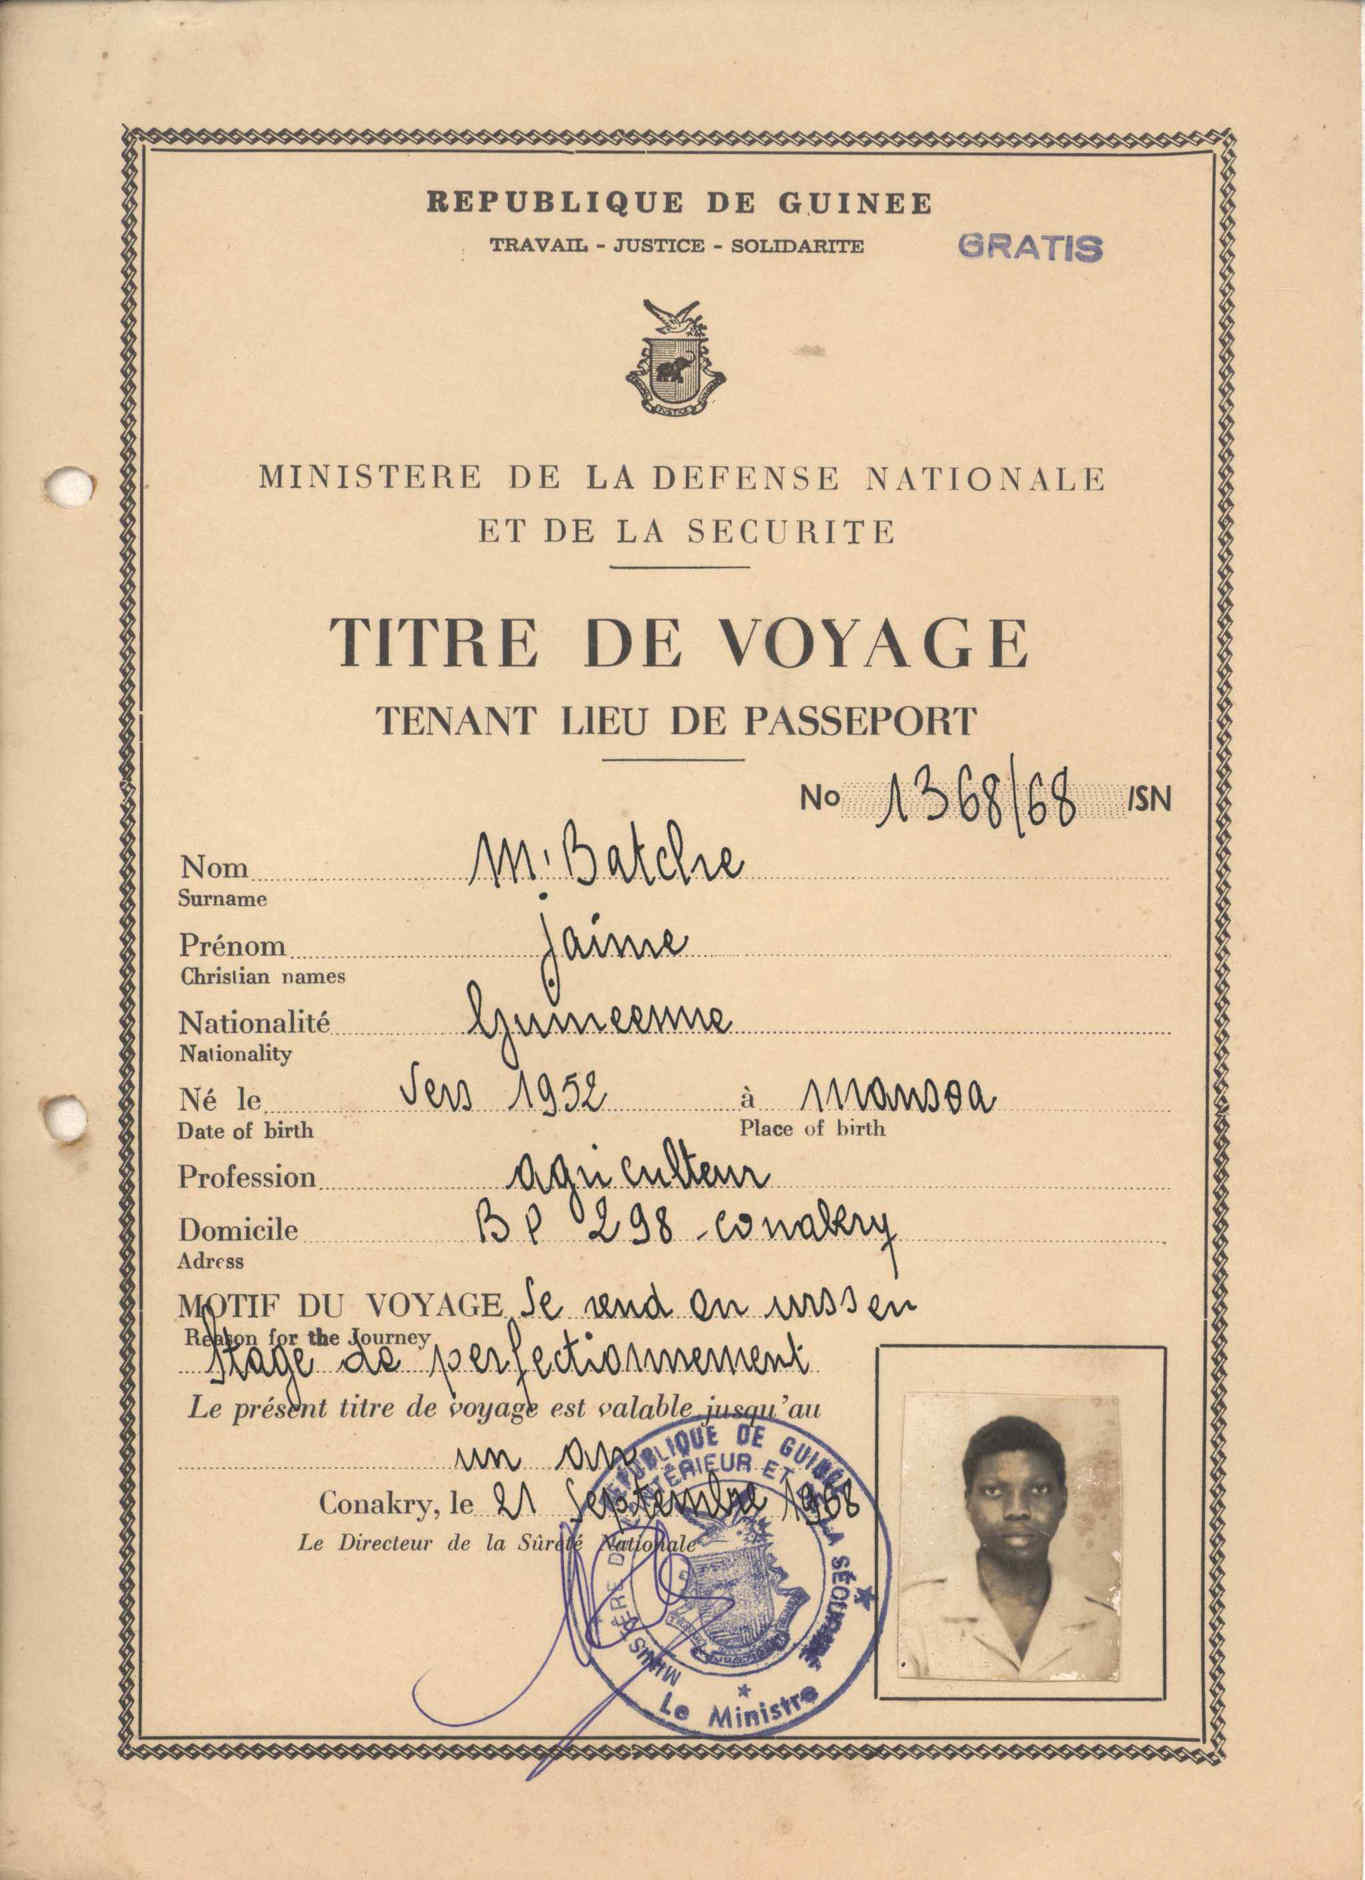 REPUBLIQUE DE GUINEE
TRAVAIL - JUSTICE - SOLIDARITE
GRATIS
JUSTICE
MINISTERE DE LA DEFENSE NATIONALE
ET DE LA SECURITE
TITRE DE VOYAGE
TENANT LIEU DE PASSEPORT
No 1368/68 /SN
Nom M'Batche
Surname
Prénom Jaime
Christian names
Nationalité Guineenne
Nationality
Né le Vers 1952 à mansoa
Date of birth Place of birth
Profession agriculteur
Domicile BP 298 - conakry
Adress
MOTIF DU VOYAGE Se rend en urss en
Reason for the Journey
Stage de perfectionnement
Le présent titre de voyage est valable jusqu'au
un an
Conakry, le 21 Septembre 1968
Le Directeur de la Sûreté Nationale
REPUBLIQUE DE GUINÉE
MINISTÈRE DE L'INTÉRIEUR ET DE LA SÉCURITÉ
Le Ministre